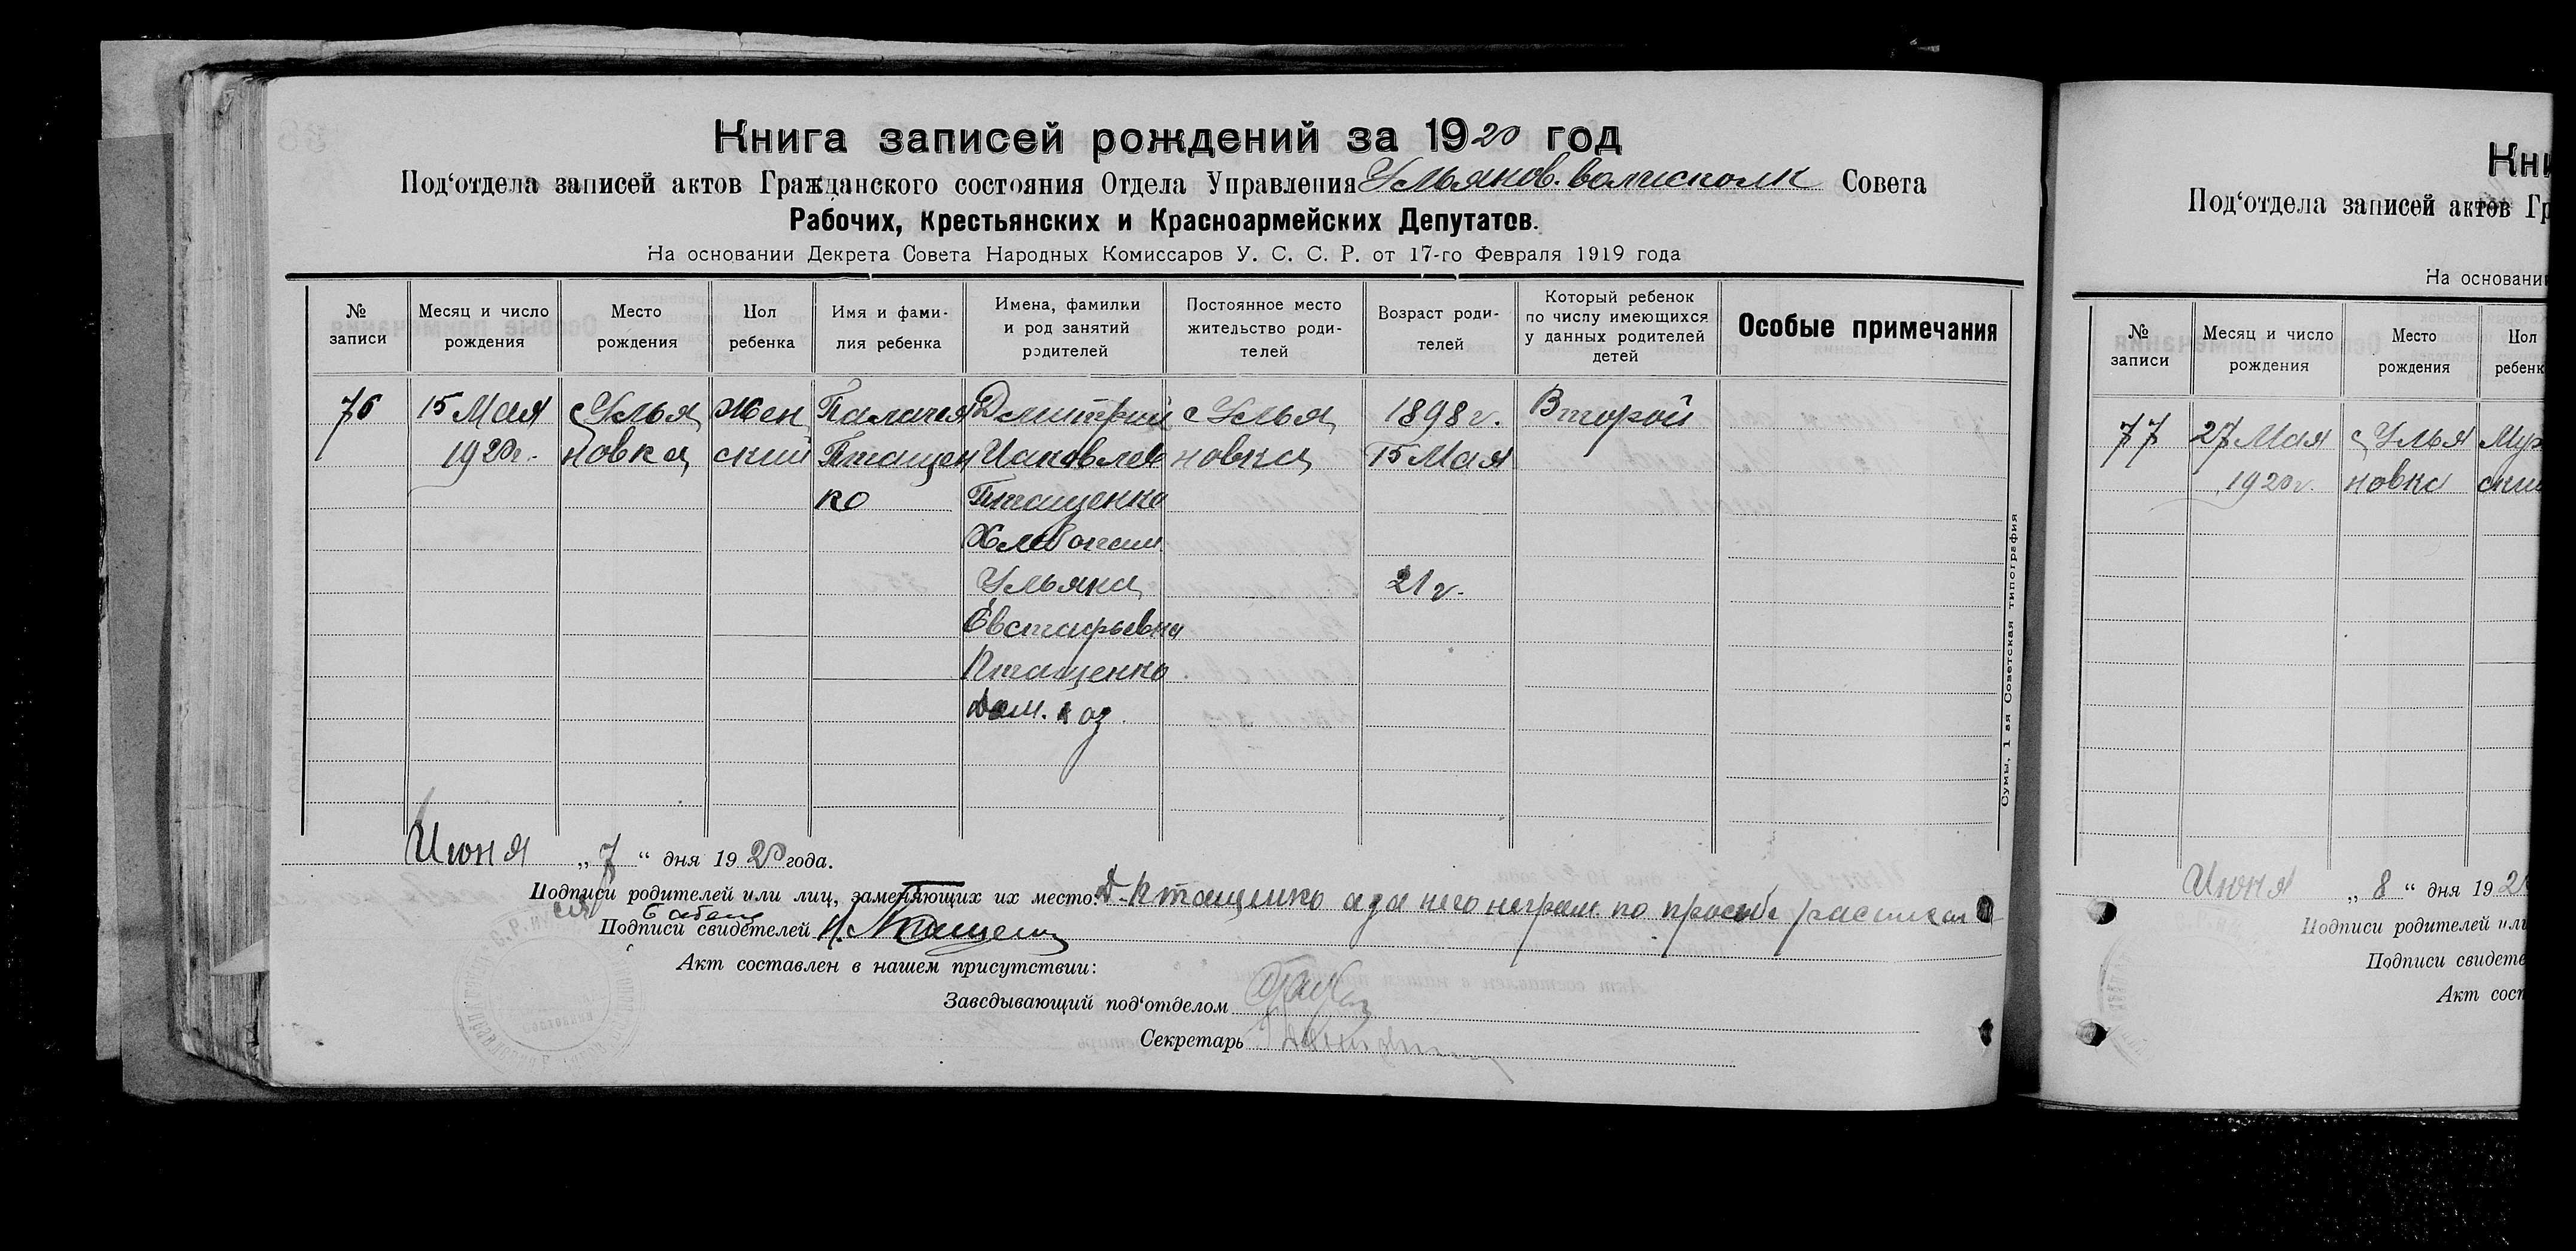 Книга записей рождений за 1920 год
Под‘отдела записей актов Гражданского состояния Отдела Управления Ульянов. волисполк Совета
Рабочих, Крестьянских и Красноармейских Депутатов.
На основании Декрета Совета Народных Комиссаров У. С. С. Р. от 17-го Февраля 1919 года
№ записи
Месяц и число рождения
Место рождения
Пол ребенка
Имя и фамилия ребенка
Имена, фамилии и род занятий родителей
Постоянное место жительство родителей
Возраст родителей
Который ребенок по числу имеющихся у данных родителей детей
Особые примечания
76 15 Мая с Улья Жен Палагея Дмитрий с Улья 1898 г. Второй
1920 г. новка ский Пташен Иаковлев новка 15 Мая
ко Пташенко
Хлебопаш
Ульяна 21 г.
Евстафьевна
Пташенко
дом. хоз
Июня „7“ дня 1920 года.
Подписи родителей или лиц, заменяющих их место: Д. Пташенко а за него неграм. по просьбе
Подписи свидетелей
Акт составлен в нашем присутствии:
Заведывающий под‘отделом
Секретарь
Сумы, 1 ая Советская типография
Кни
Под‘отдела записей актов Гр
На основании
№ записи
Месяц и число рождения
Место рождения
Пол ребенк
77 27 Мая с Улья Муж
1920 г. новка ский
Июня „8“ дня 192
Подписи родителей или
Подписи свидете
Акт сост